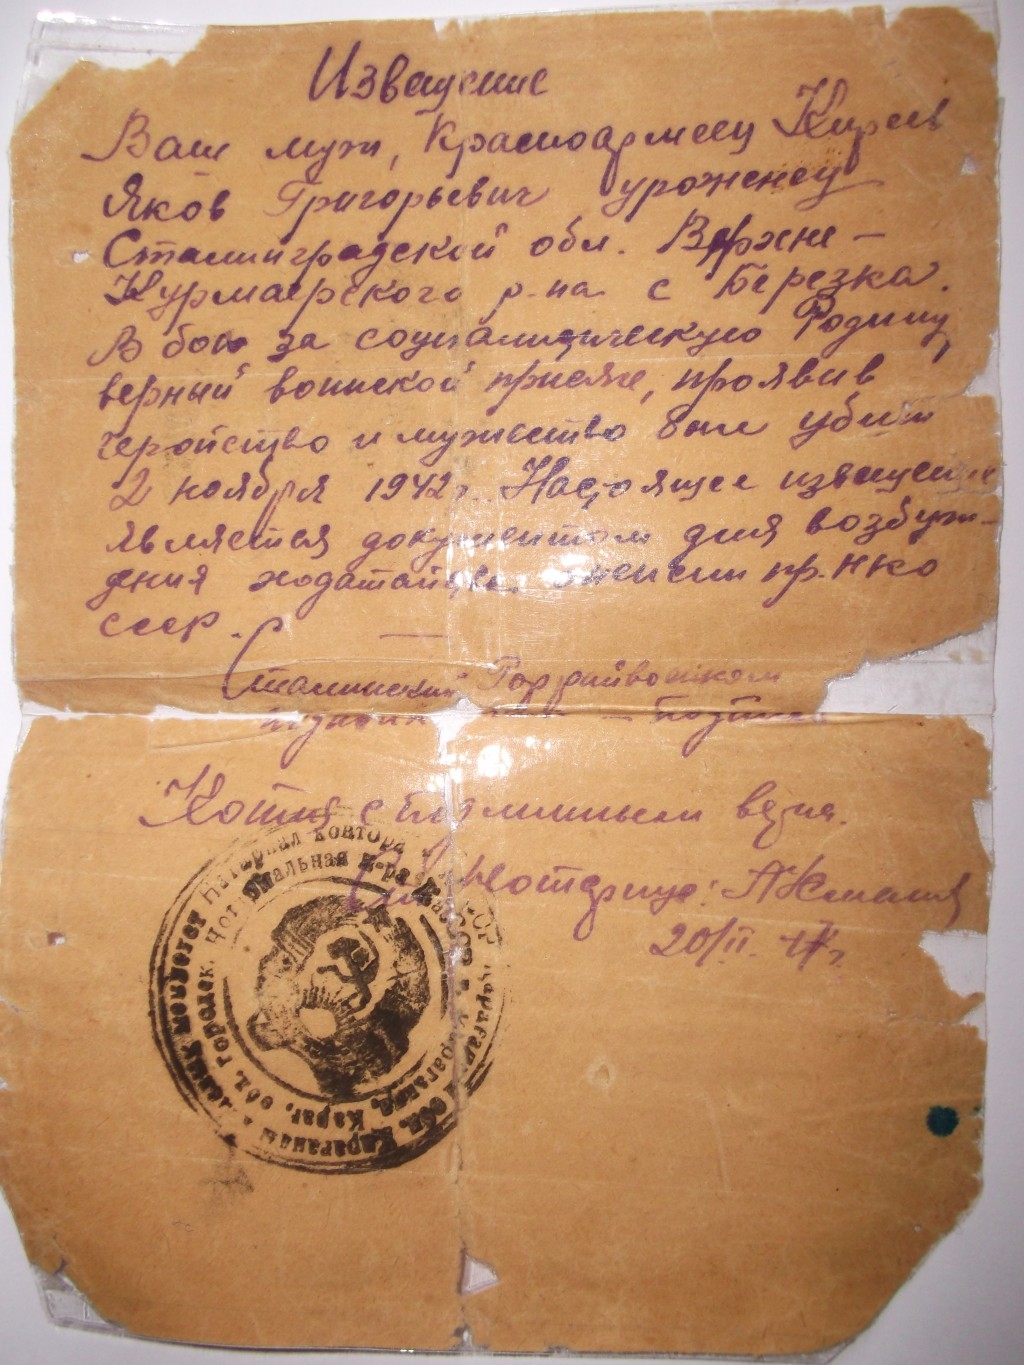 Извещение
Ваш муж, Красноармеец Киреев
Яков Григорьевич уроженец
Сталинградской обл. Верхне-
Курмаерского р-на с Березка.
В бою за социалистическую Родину,
верный воинской присяге, проявив
геройство и мужество был убит
2 ноября 1942г. Настоящее извещение
является документом для возбуж-
дения ходатайства о пенсии пр. НКО
СССР.
Сталинский Горрайвоенком
Копия с подлинным верна.
Нотариус:
20/II
Нотариальная к-ра
Караганда, Караг. обл.